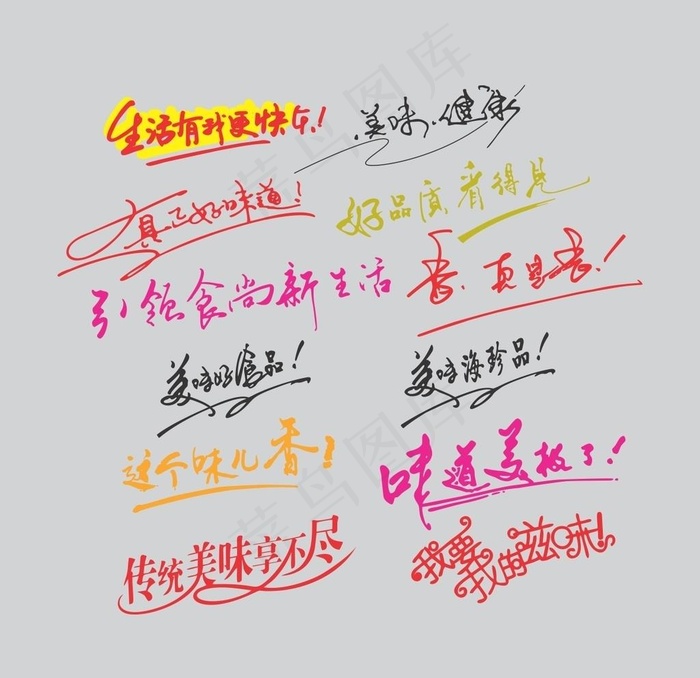 生活有我更快乐!
美味·健康
真正好味道!
好品质看得见
引领食尚新生活
香·真是香!
美味好食品!
美味海珍品!
这个味儿香!
味道美极了!
传统美味享不尽
我要我的滋味!
菜鸟图库